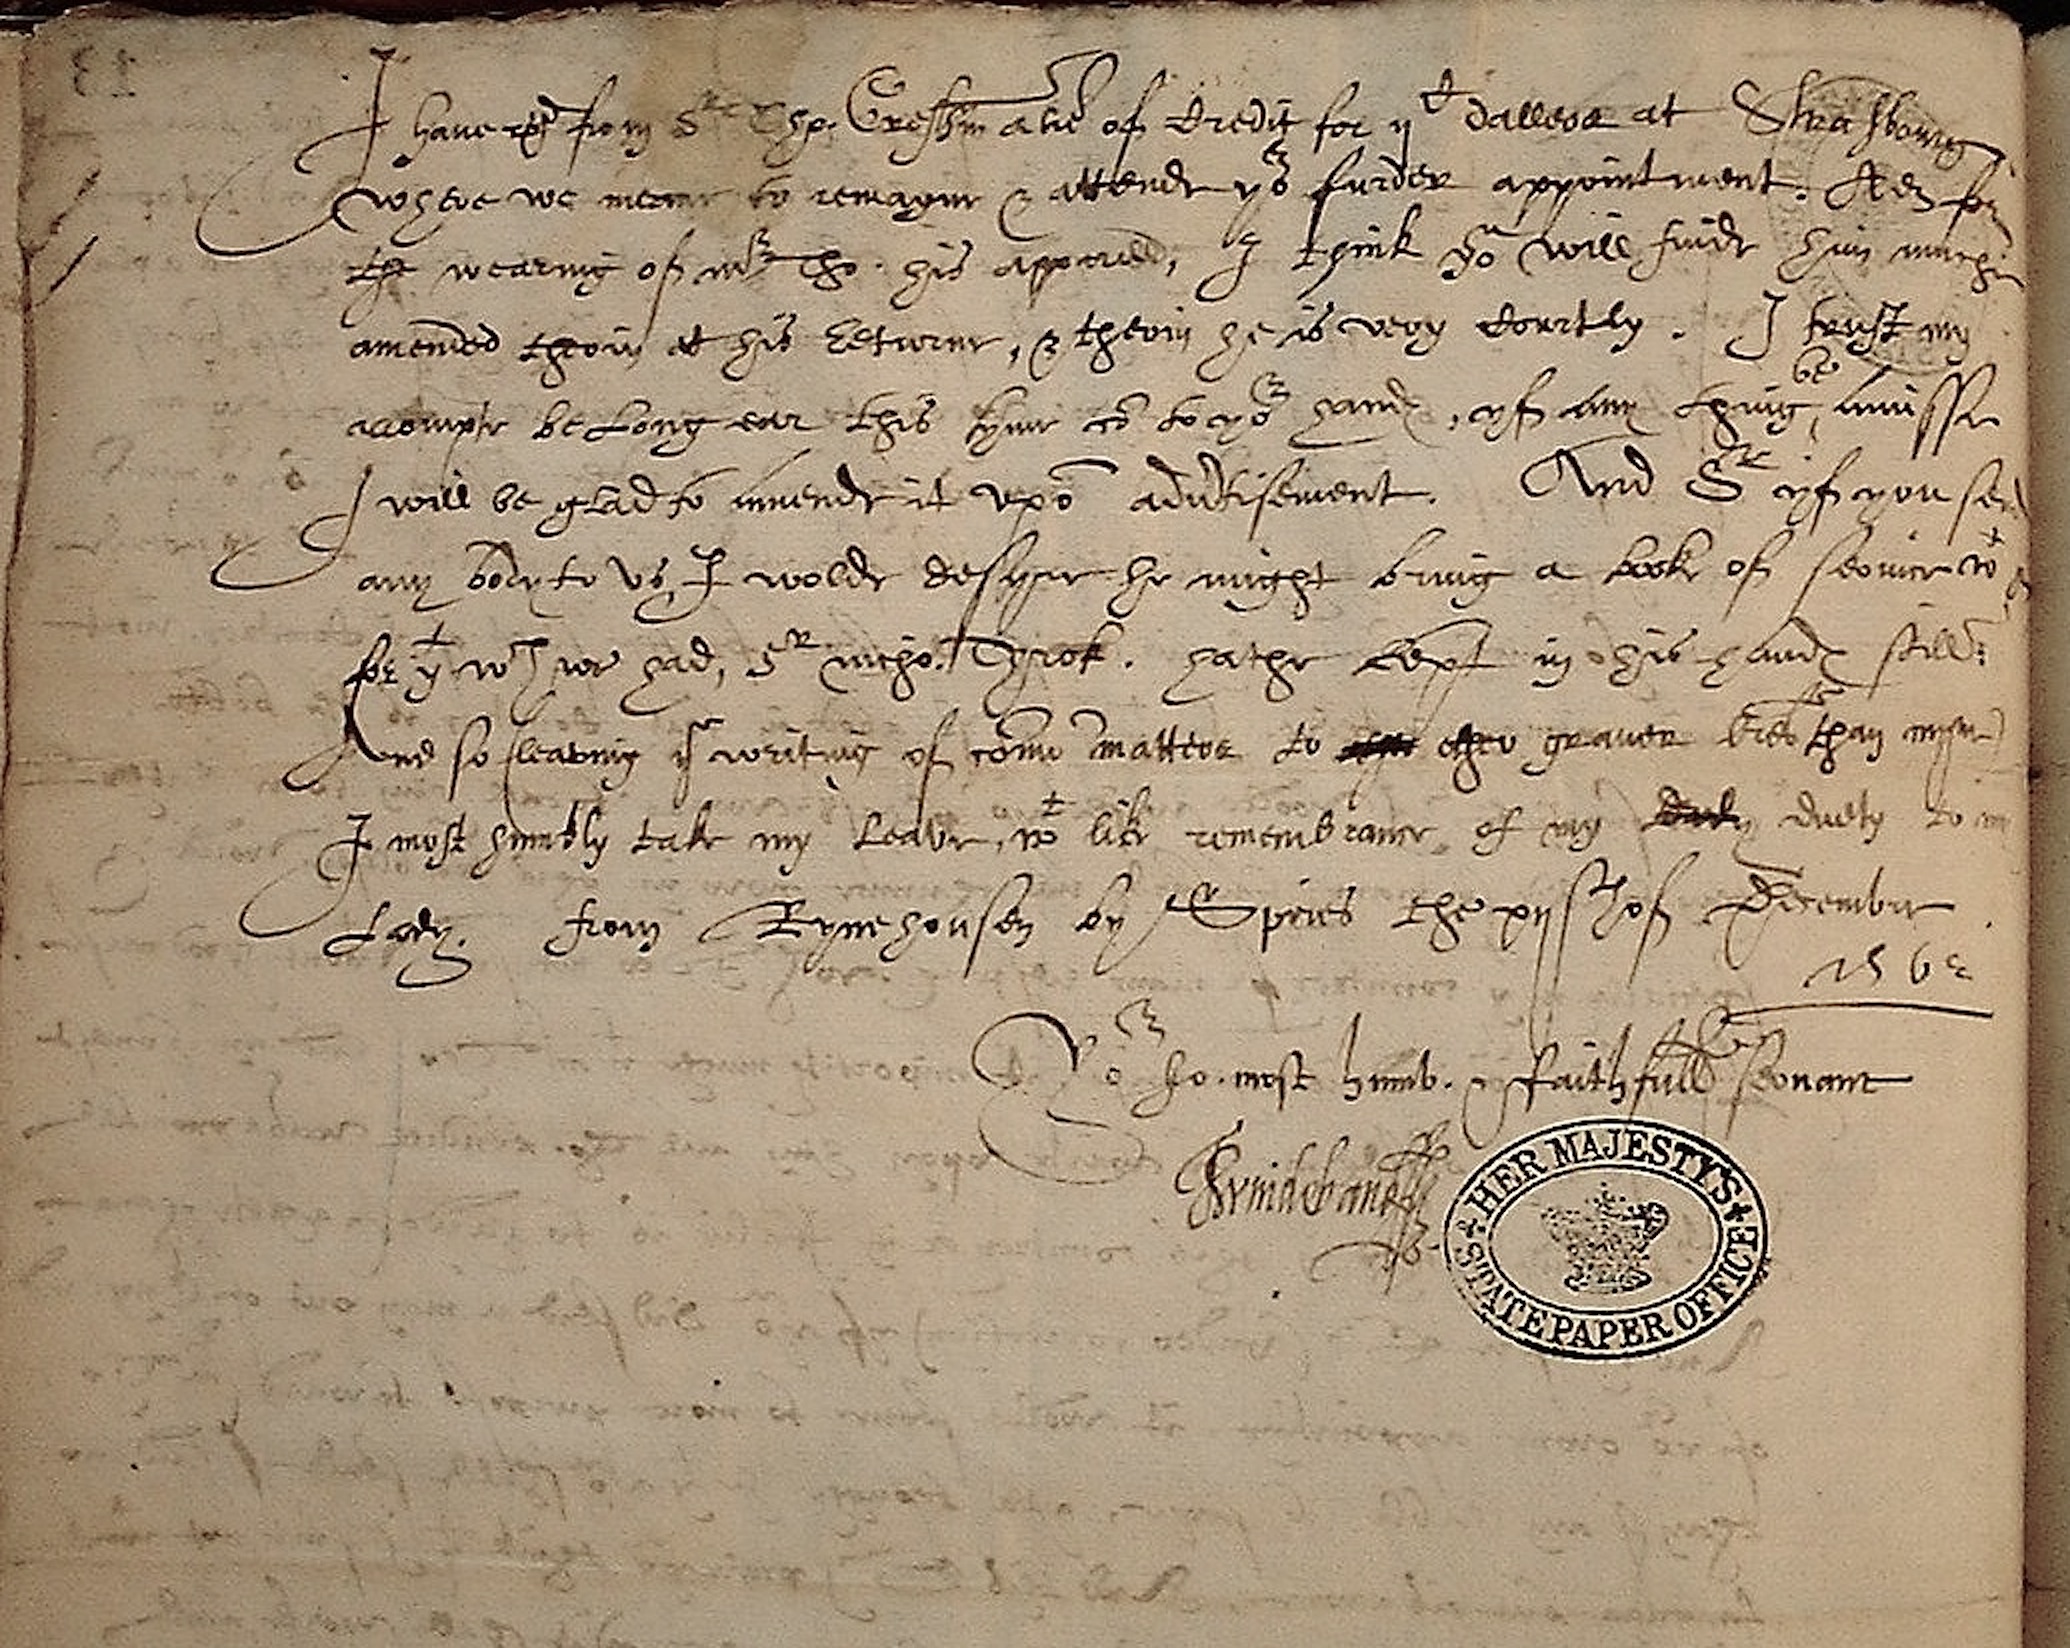 I have recd from Sr Tho. Gresham a lre of Credit for ijC dallers at Strasbourg
where we meane to remayne & attende yor furder appointment. As for
the wearing of mr Tho. his apparell, I think you will finde him muche
amended therin at his returne, & therin he is very Courtly. I trust my
accompte be Long ear this tyme co to yor hands, yf any thing be amisse
I will be glad to amende it upo advertisement. And Sr yf you send
any body to us, I wolde desyre he might bring a booke of service wt
for yt wch we had, Sr nicho. Throk. hathe kept in his hands still:
And so leaving ye writing of como matters to other graver lres than myne
I most humbly take my Leave, wt like remembrance of my duety to my
Lady. from Rynehousen by Spires the xijth of December
1561
Yor ho. most humb. & faithfull servant
TWindebank
HER MAJESTY'S STATE PAPER OFFICE
13